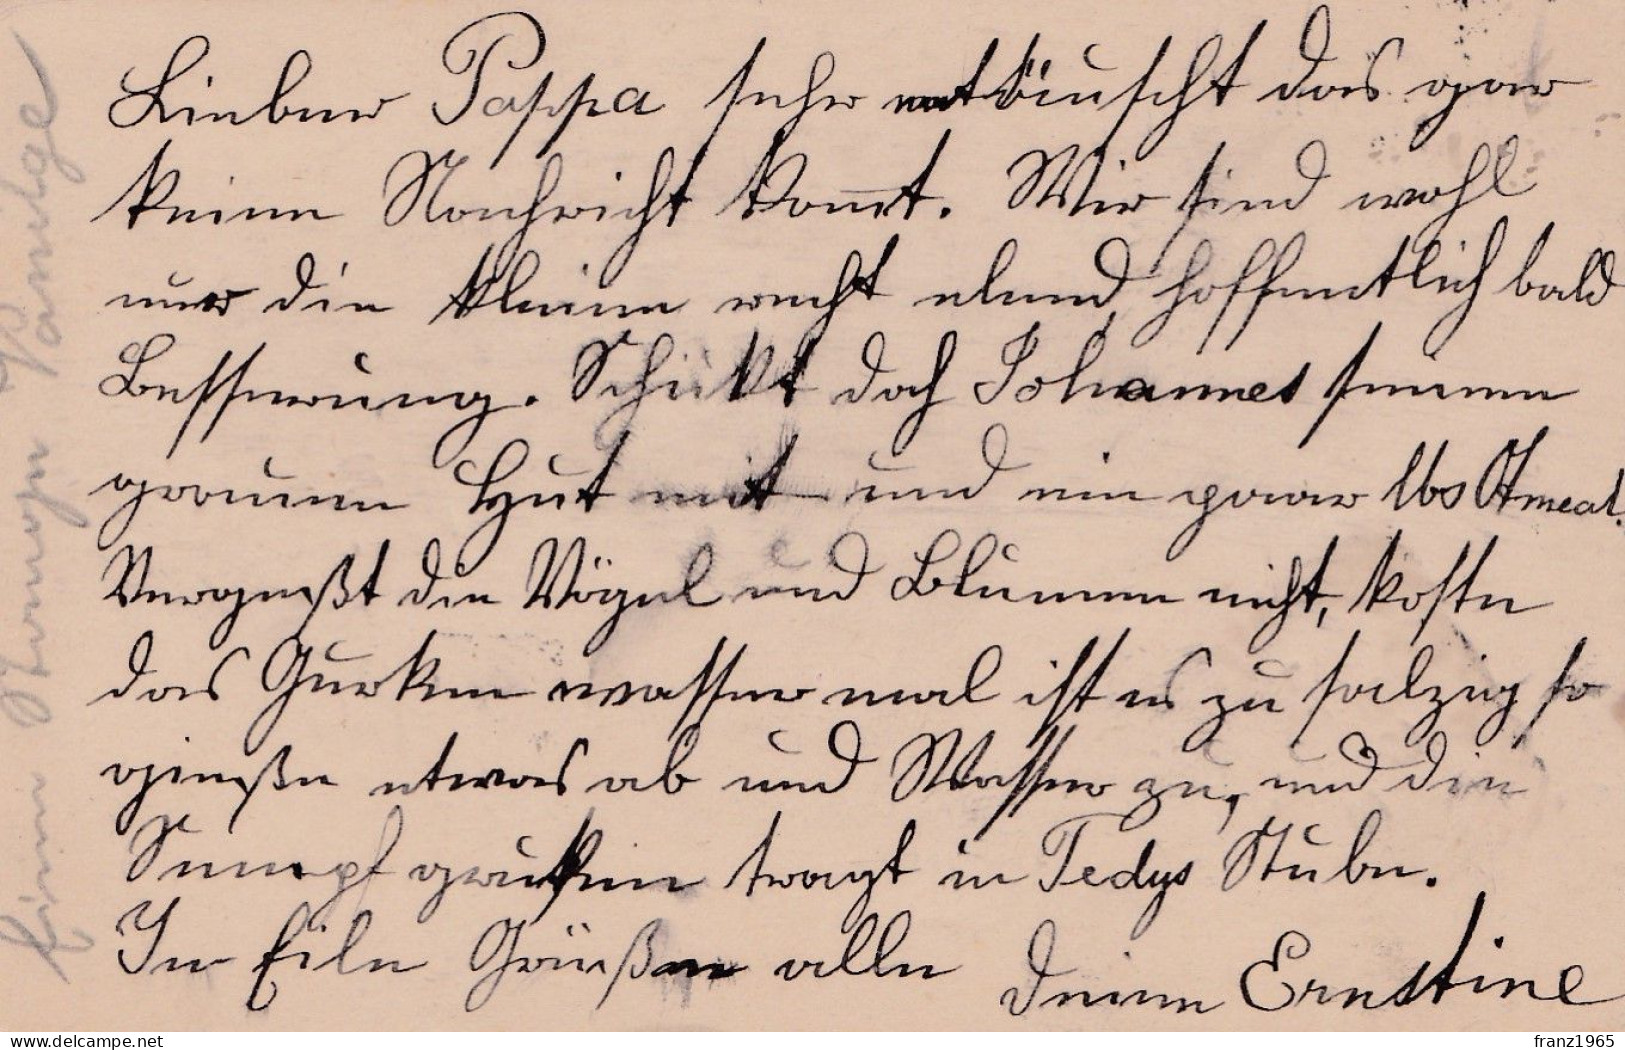 Lieber Pappa sehr enttäuscht das gar
keine Nachricht komt. Wir sind wohl
nur die kleine recht elend, hoffentlich bald
Besserung. Schikt doch Johannes seinen
grauen Hut mit und ein paar lbs Otmeal.
Vergeßt die Vögel und Blumen nicht, koste
das Gurken wasser mal ist es zu salzig so
gieße etwas ab und Wasser zu, und die
Senpf gruken tragt in Tedys Stube.
In Eile Grüßen alle deine Ernestine
Eine
delcampe.net
franz1965